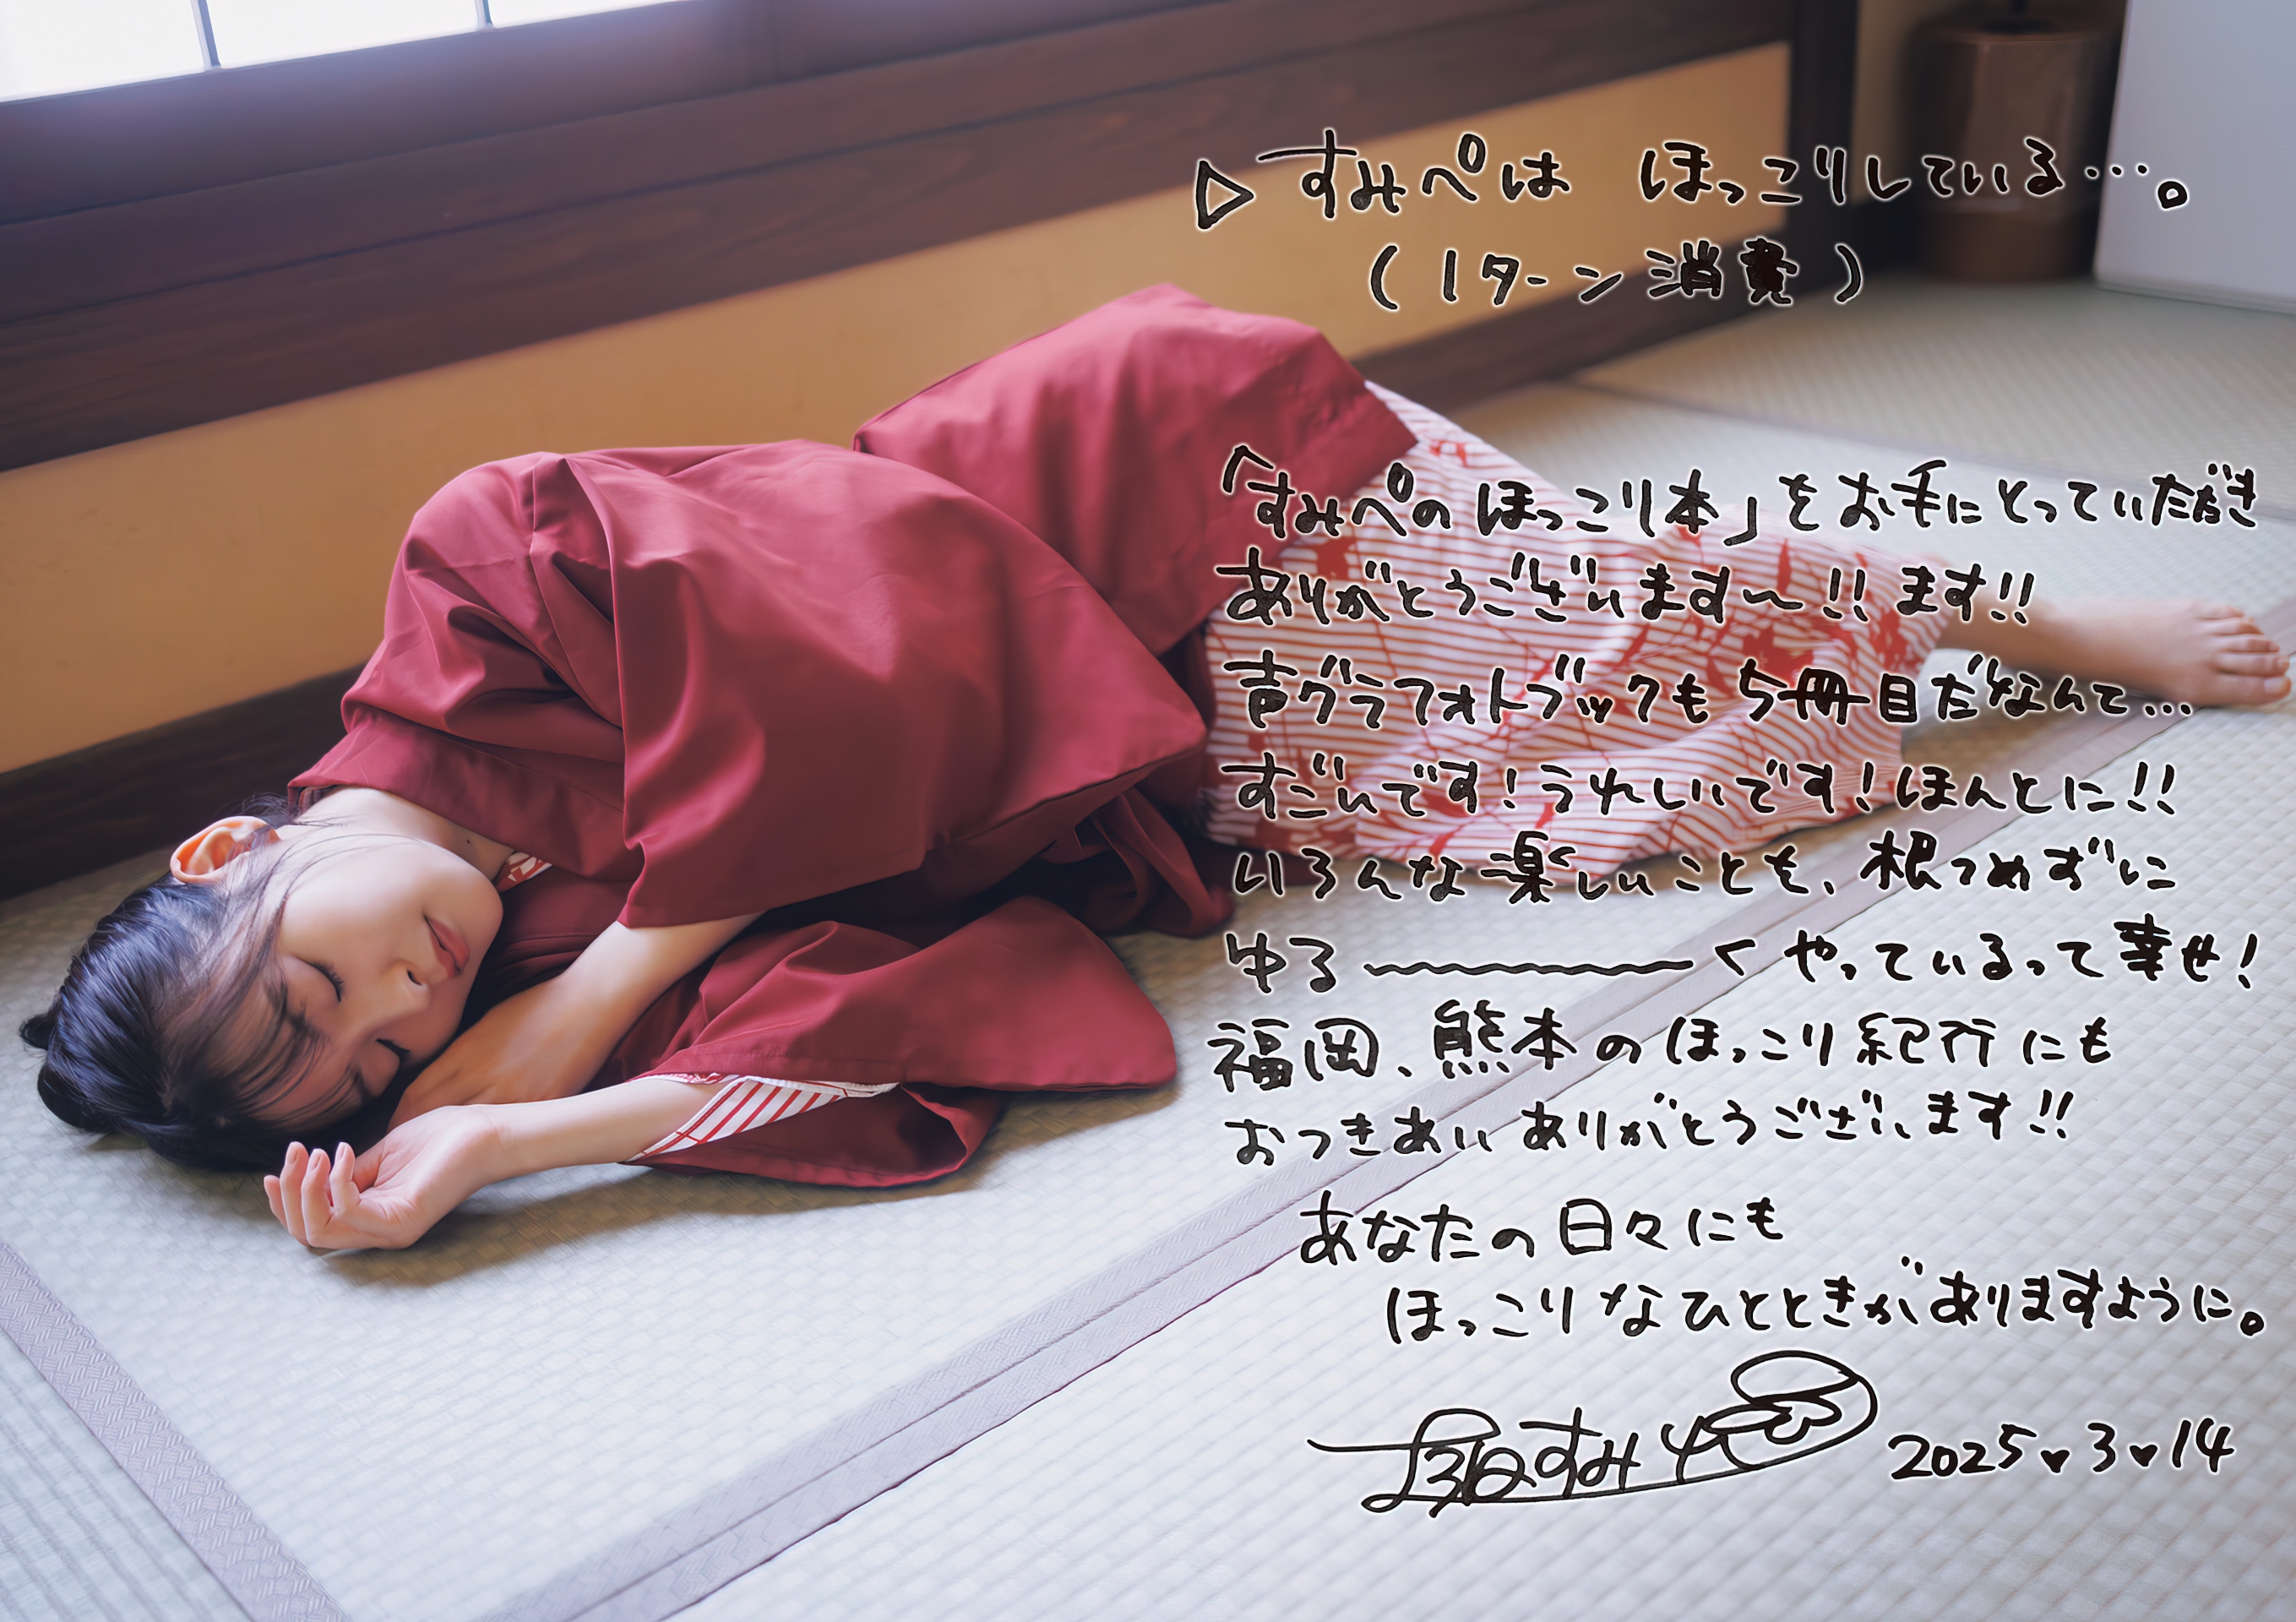 ▷すみぺは ほっこりしている…。
(1ターン消費)
「すみぺのほっこり本」をお手にとっていただき
ありがとうございます〜!!ます!!
声グラフォトブックも5冊目だなんて…
すごいです!うれしいです!ほんとに!!
いろんな楽しいことも、根つめずに
ゆる〜〜〜〜くやっているって幸せ!
福岡、熊本のほっこり紀行にも
おつきあいありがとうございます!!
あなたの日々にも
ほっこりなひとときがありますように。
2025♥3♥14